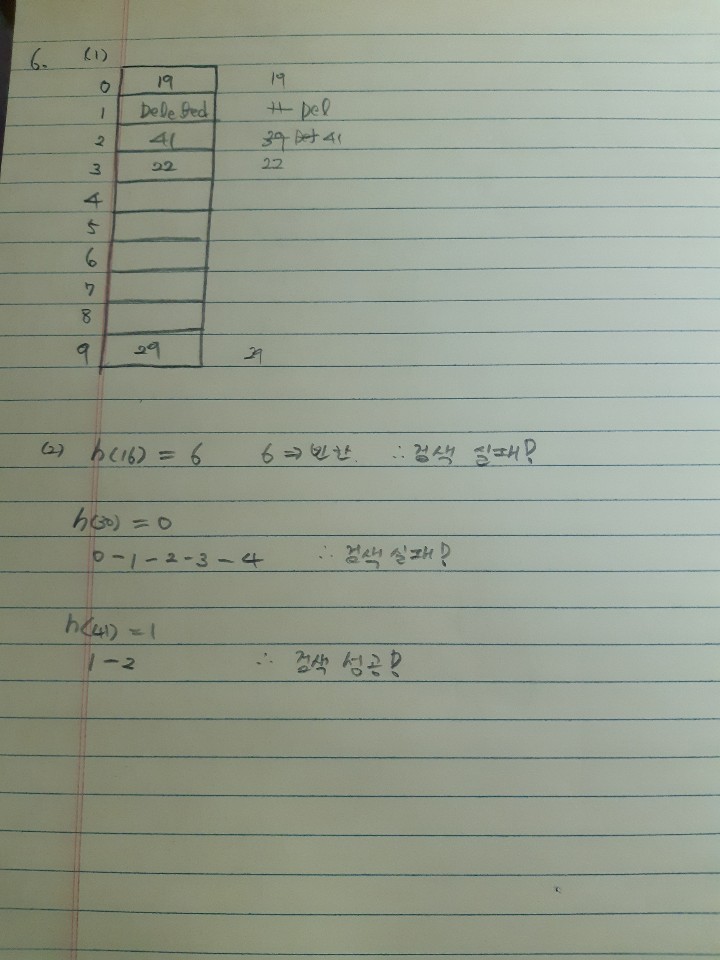 6. (1)
0 19 19
1 Deleted 11 Del
2 41 39 Del 41
3 22 22
4
5
6
7
8
9 29 29
(2) h(16) = 6 6 ⇒ 빈칸. ∴ 검색 실패!
h(30) = 0
0 - 1 - 2 - 3 - 4 ∴ 검색 실패!
h(41) = 1
1 - 2 ∴ 검색 성공!